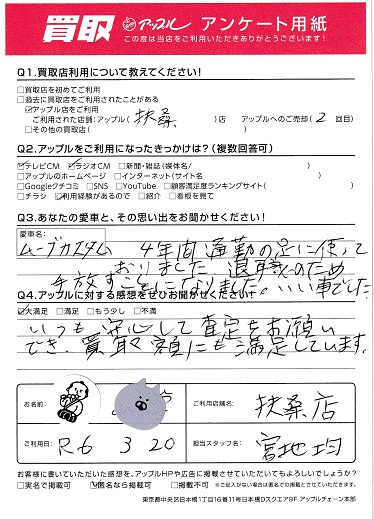 買取 アップル アンケート用紙
この度は当店をご利用いただきありがとうございます!
Q1.買取店利用について教えてください!
□買取店を初めてご利用
□過去に買取店をご利用されたことがある
☑アップル店をご利用
ご利用された店舗:アップル( 扶桑 )店 アップルへのご売却( 2 回目)
□その他の買取店( )
Q2.アップルをご利用になったきっかけは?(複数回答可)
☑テレビCM ☑ラジオCM □新聞・雑誌(媒体名/ )
□アップルのホームページ □インターネット(サイト名 )
□Googleクチコミ □SNS □YouTube □顧客満足度ランキングサイト( )
□チラシ ☑利用経験があるので □紹介 □看板を見て
Q3.あなたの愛車と、その思い出をお聞かせください!
愛車名:
ムーブカスタム 4年間通勤の足に使って
おりました。退職のため
手放すことになりました。いい車でした
Q4.アップルに対する感想をぜひお聞かせください!
☑大満足 □満足 □もう少し □不満
いつも安心して査定をお願い
でき、買取額にも満足しています。
お名前:
ご利用店舗名: 扶桑店
ご利用日: R.6 3 20
担当スタッフ名: 宮地均
お客様に書いていただいた感想を、アップルHPや広告に掲載させていただいてもよろしいでしょうか?
□実名で掲載可 ☑匿名なら掲載可 □掲載不可 ※ご記入がない場合は匿名での掲載とさせていただきます。
東京都中央区日本橋1丁目16番11号日本橋Dスクエア9F アップルチェーン本部